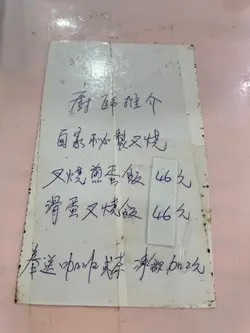 廚師推介
自家秘製叉燒
叉燒煎蛋飯 46元
滑蛋叉燒飯 46元
奉送咖啡或茶 凍飲加2元